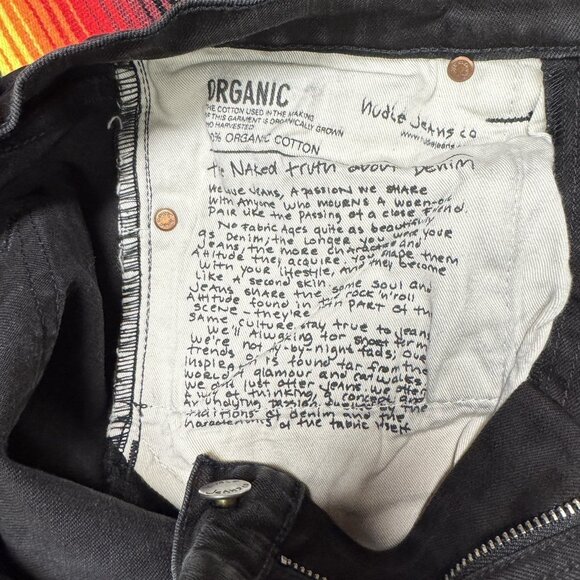 ORGANIC
THE COTTON USED IN THE MAKING
OF THIS GARMENT IS ORGANICALLY GROWN
AND HARVESTED
100% ORGANIC COTTON
Nudie Jeans co
www.nudiejeans
The Naked truth about Denim
We love Jeans, A passion we share
with Anyone who mourns a worn-out
PAIR like the passing of a close friend.
No fabric Ages quite as beautifully
as Denim, the longer you wear your
Jeans, the more character and
Attitude they acquire. You shape them
with your lifestyle, and they become
like a second skin
Jeans share the same soul and
Attitude found in the rock'n'roll
SCENE - they're part of the
same culture.
We'll Always stay true to jeans
We're not for short term
trends fly-by-night fads; our
Inspiration is found far from the
world's glamour and catwalks
we don't just offer Jeans, we offer
A way of thinking, a concept and
An undying passion
traditions of denim and the
characteristics of the fabric itself